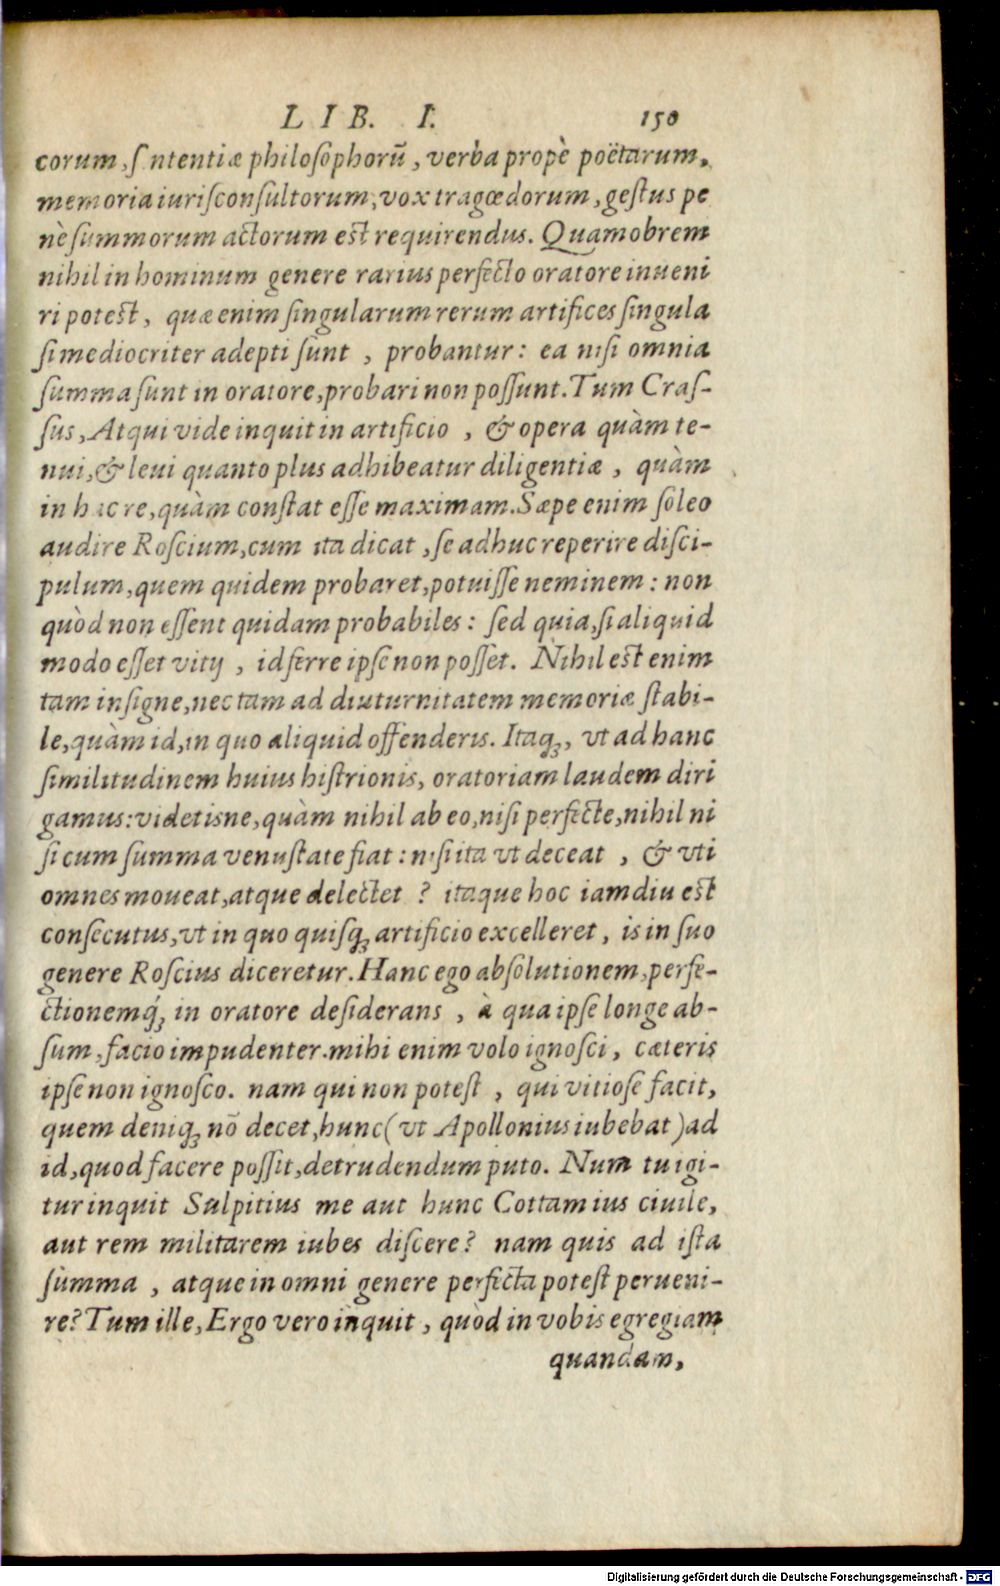 LIB. I. 150
corum, sntentiæ philosophorū, verba propè poëtarum,
memoria iurisconsultorum, vox tragœdorum, gestus pe
nè summorum actorum est requirendus. Quamobrem
nihil in hominum genere rarius perfecto oratore inueni
ri potest, quæ enim singularum rerum artifices singula
si mediocriter adepti sunt, probantur: ea nisi omnia
summa sunt in oratore, probari non possunt. Tum Cras-
sus, Atqui vide inquit in artificio, & opera quàm te-
nui, & leui quanto plus adhibeatur diligentiæ, quàm
in hac re, quàm constat esse maximam. Sæpe enim soleo
audire Roscium, cum ita dicat, se adhuc reperire disci-
pulum, quem quidem probaret, potuisse neminem: non
quòd non essent quidam probabiles: sed quia, si aliquid
modo esset vitij, id ferre ipse non posset. Nihil est enim
tam insigne, nec tam ad diuturnitatem memoriæ stabi-
le, quàm id, in quo aliquid offenderis. Itaqꝫ, vt ad hanc
similitudinem huius histrionis, oratoriam laudem diri
gamus: videtisne, quàm nihil ab eo, nisi perfecte, nihil ni
si cum summa venustate fiat: nisi ita vt deceat, & vti
omnes moueat, atque delectet? itaque hoc iamdiu est
consecutus, vt in quo quisqꝫ artificio excelleret, is in suo
genere Roscius diceretur. Hanc ego absolutionem, perfe-
ctionemq́ꝫ in oratore desiderans, à qua ipse longe ab-
sum, facio impudenter. mihi enim volo ignosci, cæteris
ipse non ignosco. nam qui non potest, qui vitiose facit,
quem deniqꝫ nō decet, hunc (vt Apollonius iubebat) ad
id, quod facere possit, detrudendum puto. Num tu igi-
tur inquit Sulpitius me aut hunc Cottam ius ciuile,
aut rem militarem iubes discere? nam quis ad ista
summa, atque in omni genere perfecta potest perueni-
re? Tum ille, Ergo vero inquit, quòd in vobis egregiam
quandam,
Digitalisierung gefördert durch die Deutsche Forschungsgemeinschaft - DFG